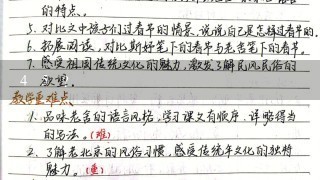 的特点。
5. 对比文中孩子们过春节的情景,说说自己是怎样过春节的。
6. 拓展阅读,对比斯妤笔下的春节与老舍笔下的春节。
7. 感受祖国传统文化的魅力,激发了解民风民俗的
欲望。
教学重难点、
1. 品味老舍的语言风格,学习课文有顺序、详略得当
的写法。(难)
2. 了解老北京的风俗习惯,感受传统年文化的独特
魅力。(重)